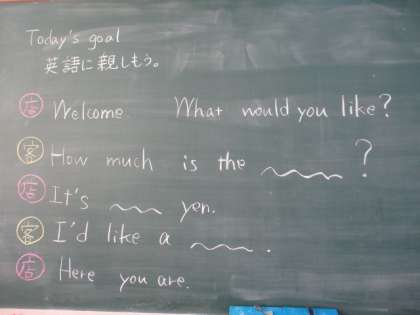 Today's goal
英語に親しもう。
店 Welcome. What would you like?
客 How much is the ?
店 It's yen.
客 I'd like a .
店 Here you are.